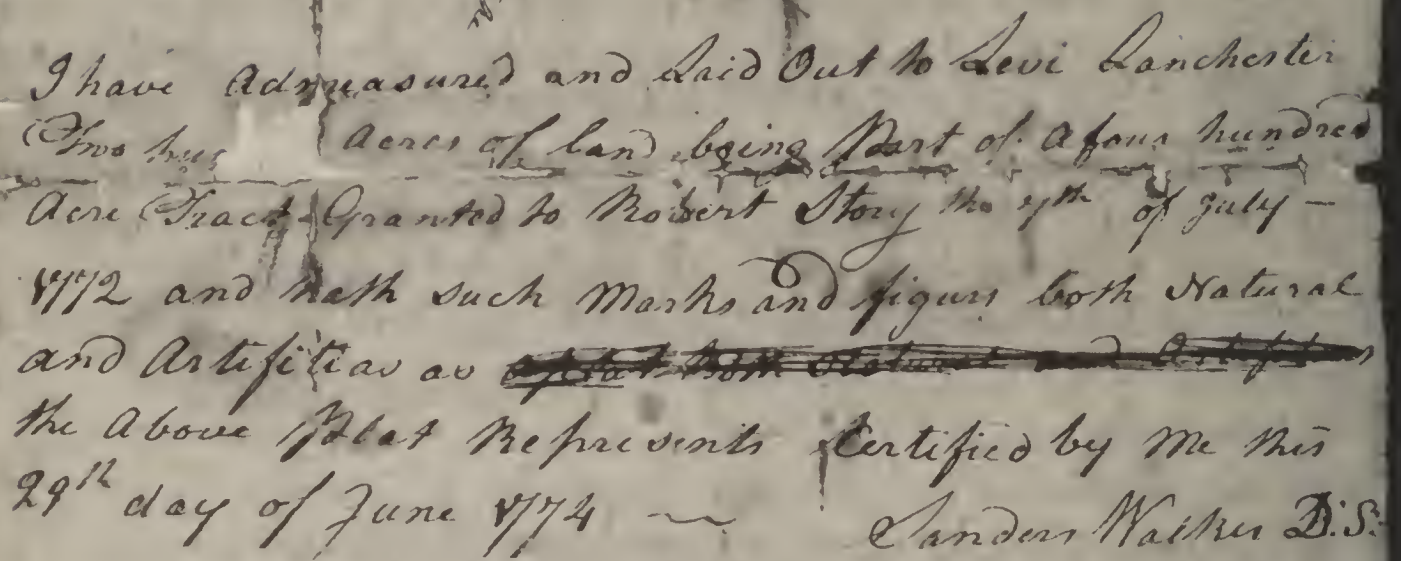 I have Admeasured and Laid Out to Levi Lanchester
Two hun Acres of land being Part of a four hundred
Acre Tract Granted to Robert Story the 7th of July —
1772 and hath such Marks and figurs both Natural
and Artifitial as
the Above Plat Represents Certified by Me this
29th day of June 1774
Sanders Walker D.S.